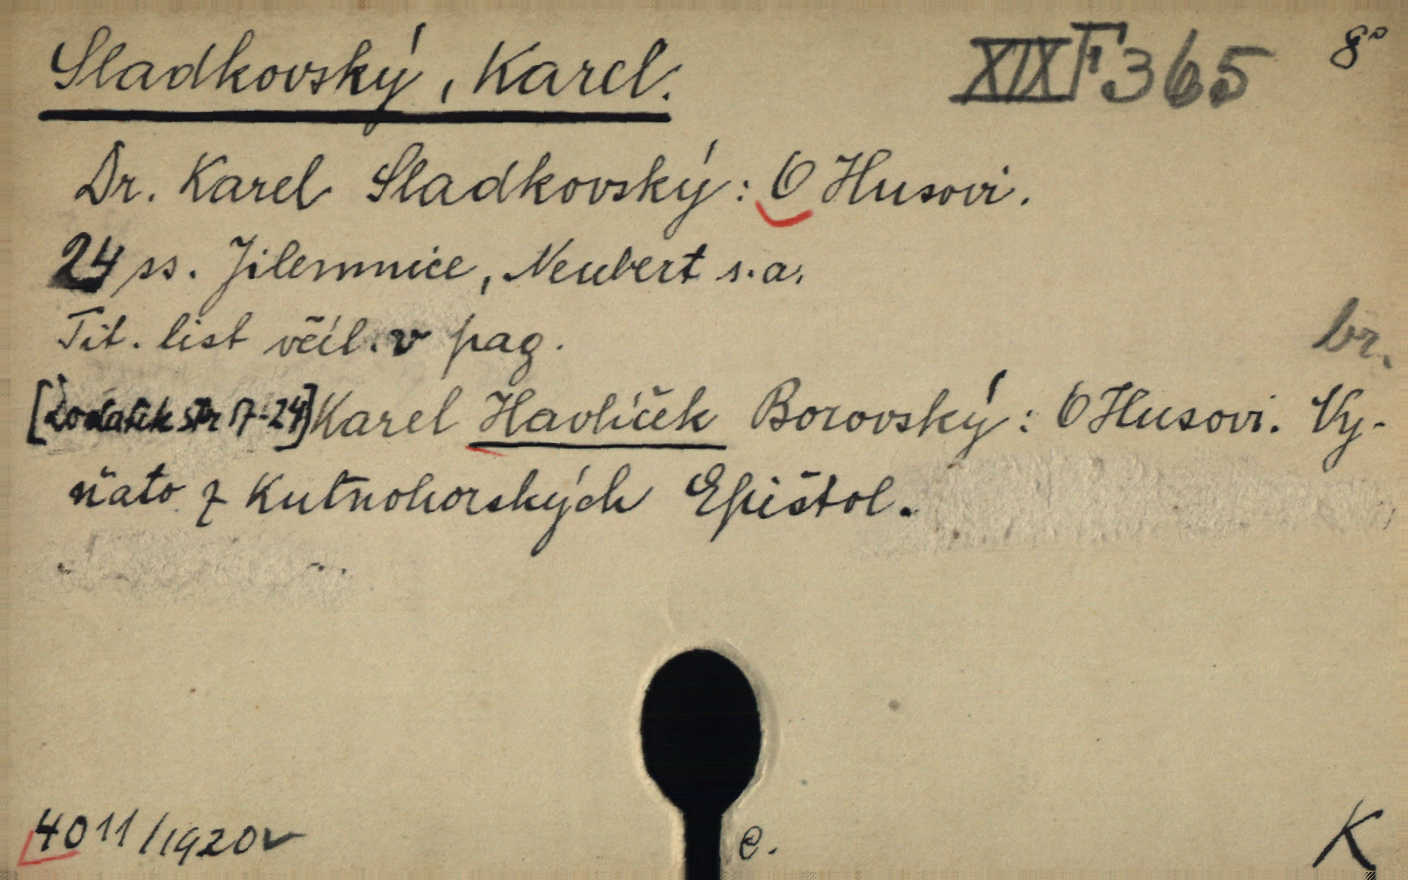 Sladkovský, Karel.
XIX F 365
8°
Dr. Karel Sladkovský: O Husovi.
24 ss. Jilemnice, Neubert s.a.
Tit. list včísl. v pag.
br.
[Dodatek str 17-24] Karel Havlíček Borovský: O Husovi. Vy-
ňato z Kutnohorských Epištol.
4011/1920
e.
K